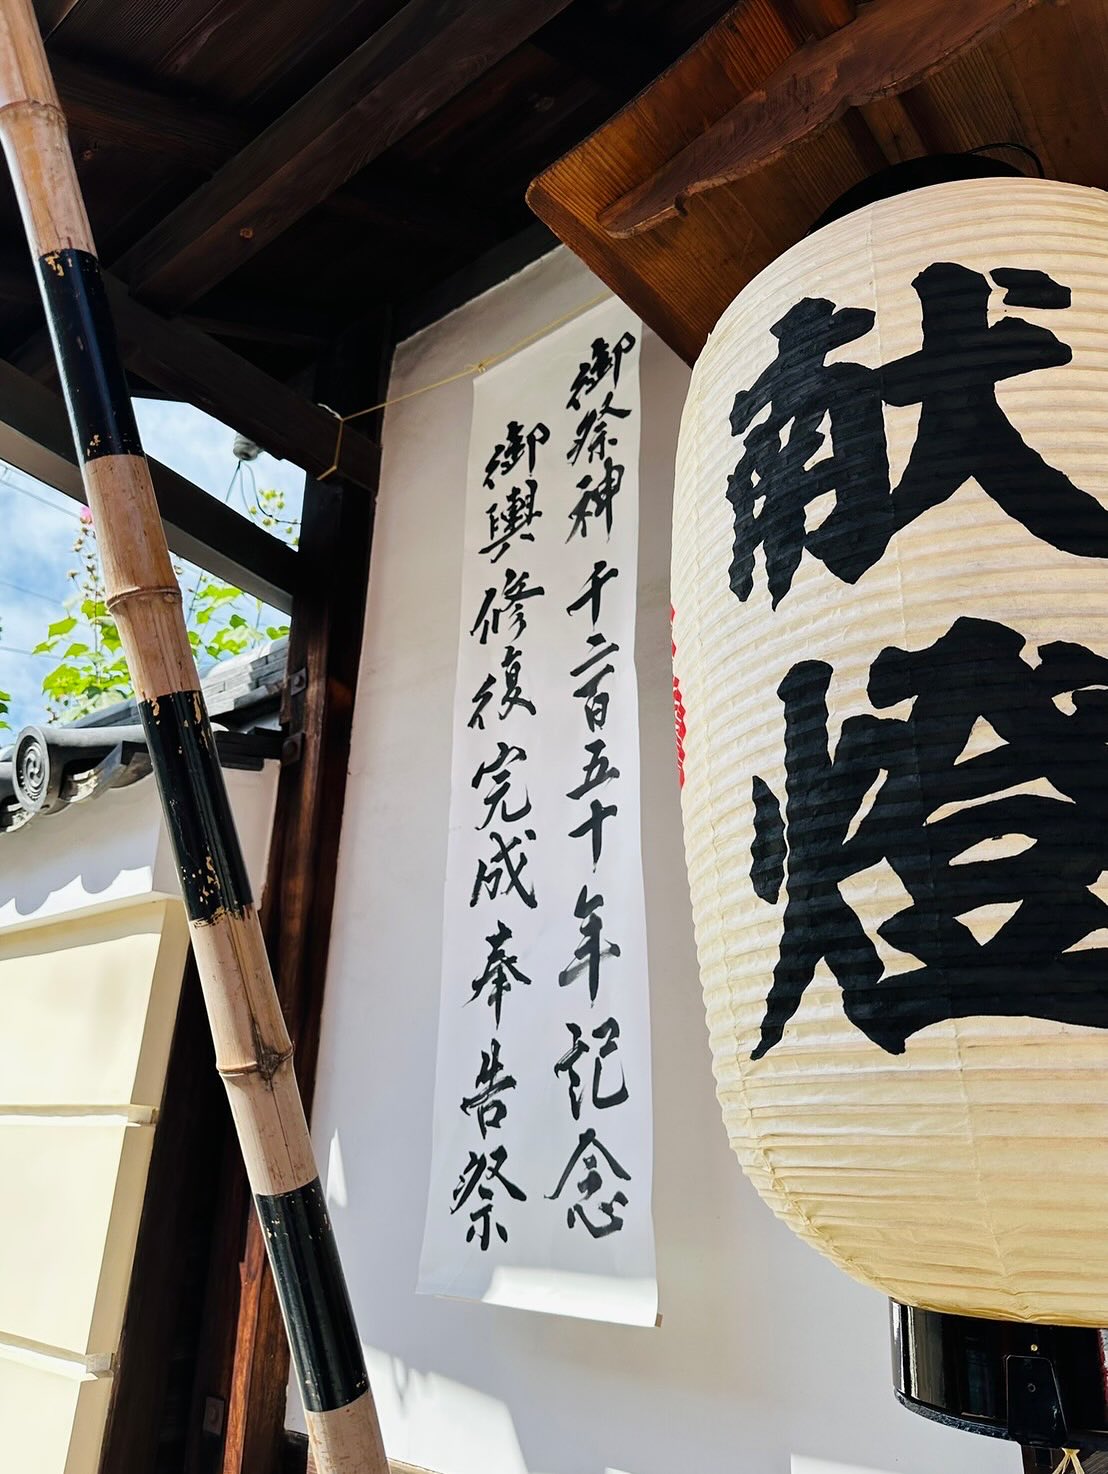 御祭神千二百五十年記念
御輿修復完成奉告祭
献燈